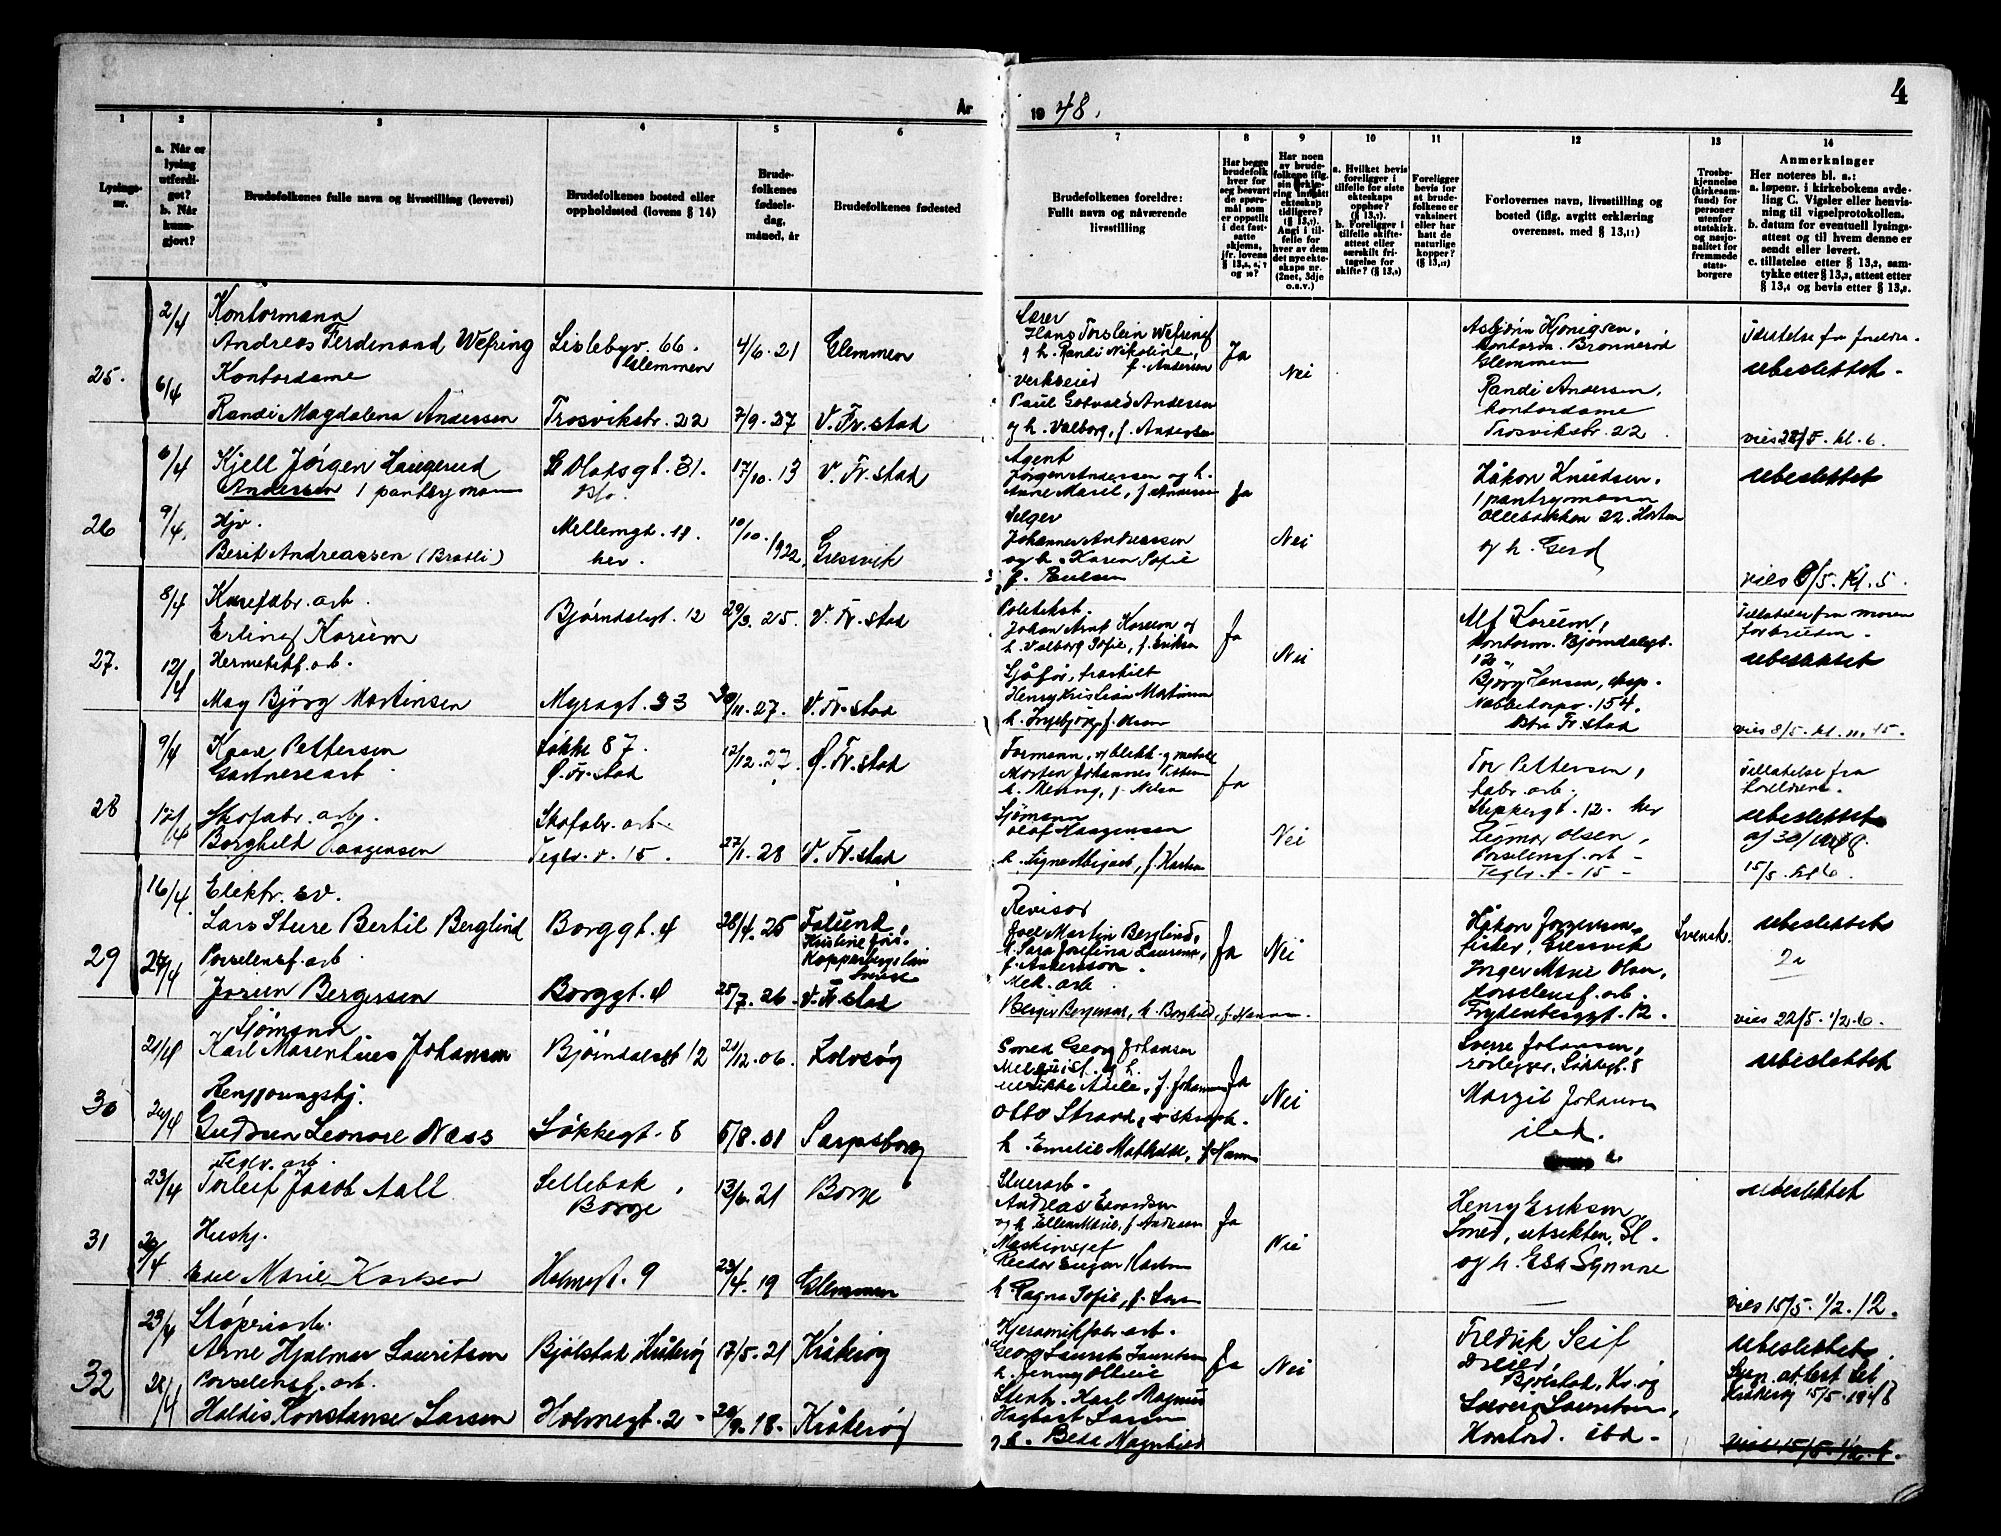 År
1948.
4
1
2
3
4
5
6
7
8
9
10
11
12
13
14
Lysings-
nr.
a. Når er
lysing
utferdi-
get?
b. Når
kunn-
gjort?
Brudefolkenes fulle navn og livsstilling (levevei)
Brudefolkenes bosted eller
oppholdssted (lovens § 14)
Brude-
folkenes
fødsels-
dag,
måned, år
Brudefolkenes fødested
Brudefolkenes foreldre:
Fullt navn og nåværende
livsstilling
Har begge
brudefolk
hver for
seg besvart
de spørs-
mål som
er oppstilt
i det fast-
satte
skjema,
jfr. lovens
Har noen
av brude-
folkene iflg.
sin erklæ-
ring inngått
ekteskap
tidligere?
Angi i til-
felle for
hver av dem
det nye ekte-
skaps nr.
(2net, 3dje
o.s.v.)
a. Hvilket bevis
foreligger i
tilfelle for siste
ekteskaps
opphør?
b. Foreligger i
tilfelle skifte-
attest eller
særskilt fri-
tagelse for
skifte?
Foreligger
bevis for
at brude-
folkene er
vaksinert
eller har
hatt de
naturlige
kopper?
Forlovernes navn, livsstilling og
bosted (iflg. avgitt erklæring
overenst. med § 13,11)
Trosbe-
kjennelse
(kirkesam-
fund) for
personer
utenfor
statskirk.
og nasjo-
nalitet for
fremmede
stats-
borgere
Anmerkninger
Her noteres bl. a.:
a. løpenr. i kirkebokens avde-
ling C. Vigsler eller henvis-
ning til vigselprotokollen.
b. datum for eventuell lysings-
attest og til hvem denne er
sendt eller levert.
c. tillatelse etter § 13,2, sam-
tykke etter § 13,3, attest etter
§ 13,4 og bevis etter § 13,8.
25.
2/4
6/4
Kontormann
Andreas Ferdinand Wefring
Kontordame
Randi Magdalena Andersen
Lislebyv. 66.
Glemmen
Trosvikstr. 22
4/6. 21
7/9. 27
Glemmen
V. Fr.stad
Lærer
Hans Torslein Wefring
og h. Randi Nikoline,
f. Andersen
verkseier
Paul Gotvald Andersen
og h. Valborg, f. Andersen
Ja
Nei
Asbjörn Kjönigsen,
kontorm. Brönneröd
Glemmen
Randi Andersen,
kontordame
Trosvikstr. 22
ubeslektet.
vies 28/5. kl. 6.
26
6/4
9/4.
Kjell Jörgen Haugerud
Andersen / pantrymann
Hjv.
Berit Andreassen (Bratli)
St Olafsgt. 31.
Mellemgt. 11.
her.
17/10. 13
10/10. 1922,
V. Fr.stad
Gressvik
Agent
Jörgen Andersen og h.
Anne Marie, f. Andersen
Selger
Johannes Andreassen
og h. Karen Sofie
f. Paulsen
Ja
Nei
Håkon Knudsen,
/pantrymann
Ollebakken 22. Horten
og h. Gerd
ubeslektet
vies 8/5. Kl. 5.
27.
8/4
12/4
Erling Korum
Hermetikf. arb.
May Björg Martinsen
Bjørndalsgt. 12
Myragt. 33
29/3. 25.
30/11. 27.
V. Fr.stad
V. Fr.stad
Johan Arnt Korum og
h. Valborg Sofie, f. Eriksen
Henry Kristian Martinsen
h. Ingebjörg, f. Olsen
Ja
Nei
Alf Korum,
kontorm. Bjørndalsgt.
12
Björg Hansen, eksp.
Nabbetorpv. 154.
Østre Fr.stad
Tillatelse fra moren
for bruden.
ubeslektet
vies 8/5. kl. 11, 45.
28
9/4
17/4
Kaare Pettersen
Gartnerarb.
Skofabr. arb.
Borghild Haagensen
Løkke 87.
Ø. Fr. stad
Skofabr. arb.
Teglv. v. 15.
12/12. 27
27/1. 28
Ø. Fr.stad
V. Fr.stad
Formann, v/ blekk- og metall
Morten Johannes Petters
Sjömann
Olaf Haagensen
Ja
Nei
Tor Pettersen,
fabr. arb.
Steppergt. 12. her
Sigmor Olsen,
Porselensf. arb.
Teglv. v. 15
Tillatelse fra
foreldrene.
ubeslektet
15/5. kl 6.
29
16/4.
24/4
Elektr. sv.
Lars Sture Bertil Berglind
Porselensf. arb.
Jorun Bergersen
Borggt. 4
Borggt. 4
28/4. 25
25/7. 26.
Falund,
Kristine förs.
Kopparbergs län
Sverige
V. Fr.stad
Revisor
Joel Martin Berglind,
h. Sara Josefina Laurena,
f. Andersson.
Mek. arb.
Birger Bergersen, h. Borghild, f. Hansen.
Ja
Nei
Håkon Jørgensen,
fisker, Gressvik
Inger Marie Olsen,
porselensf. arb.
Frydenbergt. 12.
Svensk.
ubeslektet
vies 22/5. 1/2. 6.
30
21/4
24/4
Sjömann
Karl Marentius Johansen
Rengjøringshj.
Gudrun Leonore Næss
Bjørndalsgt 12
Løkkegt. 8
21/12. 06.
5/8. 01
Tolvsøy
Sarpsborg
Smed Georg Johansen
h. Emelie Mathilde, f. Hansen
Ja
Nei
Sverre Johansen,
rörlegger, Løkkegt. 8
Margit Johansen
ibd.
ubeslektet
31
23/4
26/4
Teglv. arb.
Torleif Jacob Aall
Hushj.
Edel Marie Karlsen
Sellebak,
Borge
Holmegt. 9
13/6. 21
23/4. 19
Borge
Glemmen
Stuerarb.
Andreas Edvardsen
og h. Ellen Marie, f. Andersen
Maskinsjef
h. Ragna Sofie, f. Lars
Ja
Nei
Henry Eriksen,
Smed, utsikten, Sl.
og h. Elsa Synnøve
ubeslektet
vies 15/5. 1/2. 12.
32
23/4
28/4
Støperiarb.
Arne Hjalmar Lauritsen
Porselensf. arb.
Haldis Konstanse Larsen
Bjølstad Kråkerøy
Holmegt. 2
17/5. 21
20/9. 18.
Kråkerøy
Kråkerøy
Kjeramikfabr. arb.
Georg Laurits Lauritsen
h. Jenny Ottilie
Stenh. Karl Magnus
Hagbart Larsen
og h. Beda Magnhild
Ja
Nei
Fredrik Seif
Dreier,
Bjølstad, Kr. og
Solveig Lauritsen,
Kontord. ibd.
ubeslektet.
Lysn. attest til
Kråkerøy 15/5. 1948
vies 15/5. 1/2. 1.